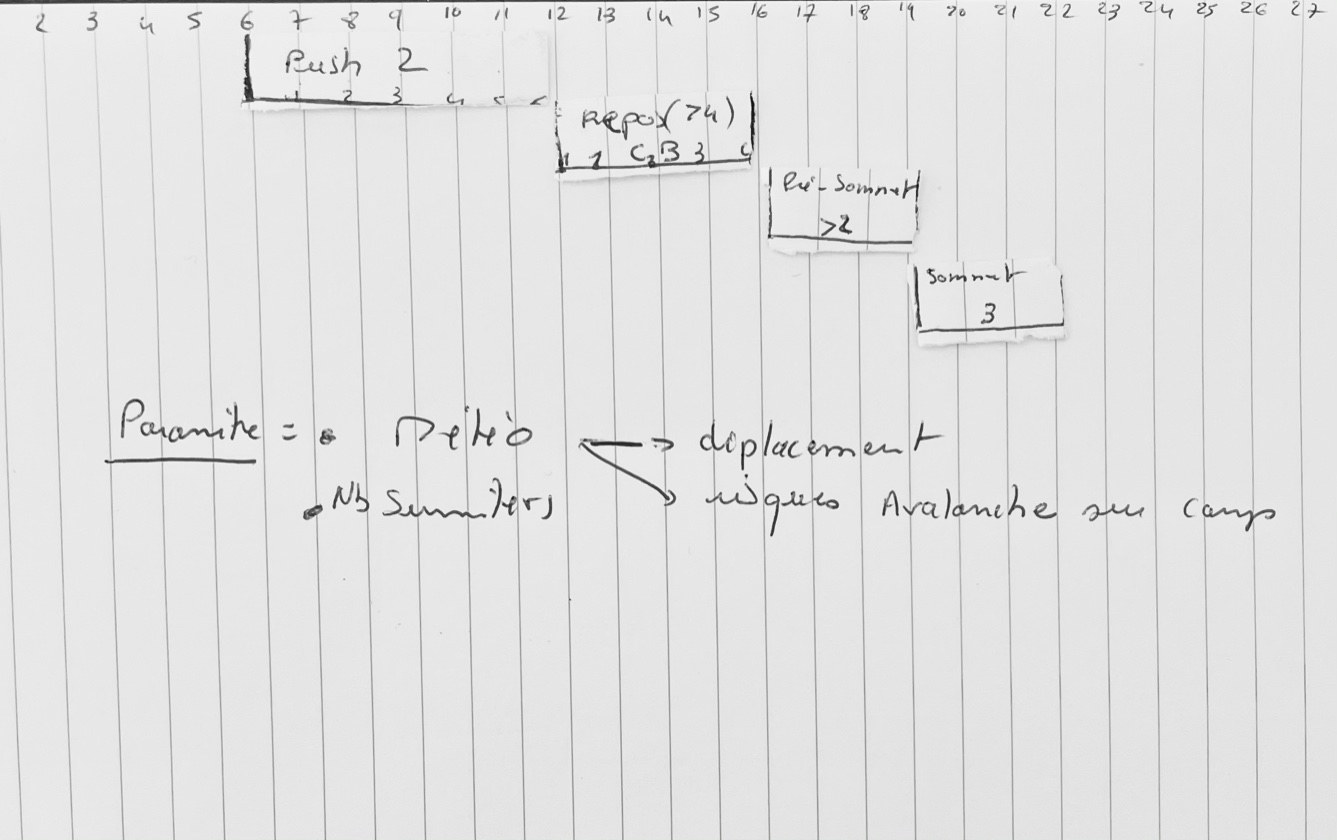 2 3 4 5 6 7 8 9 10 11 12 13 14 15 16 17 18 19 20 21 22 23 24 25 26 27
Push 2
1 2 3 4
Repos (>4)
1 2 CB 3
Pré-Sommet
>2
Sommet
3
Paramètre = • Météo → déplacement
• Nb Summiters → risques Avalanche sur camp